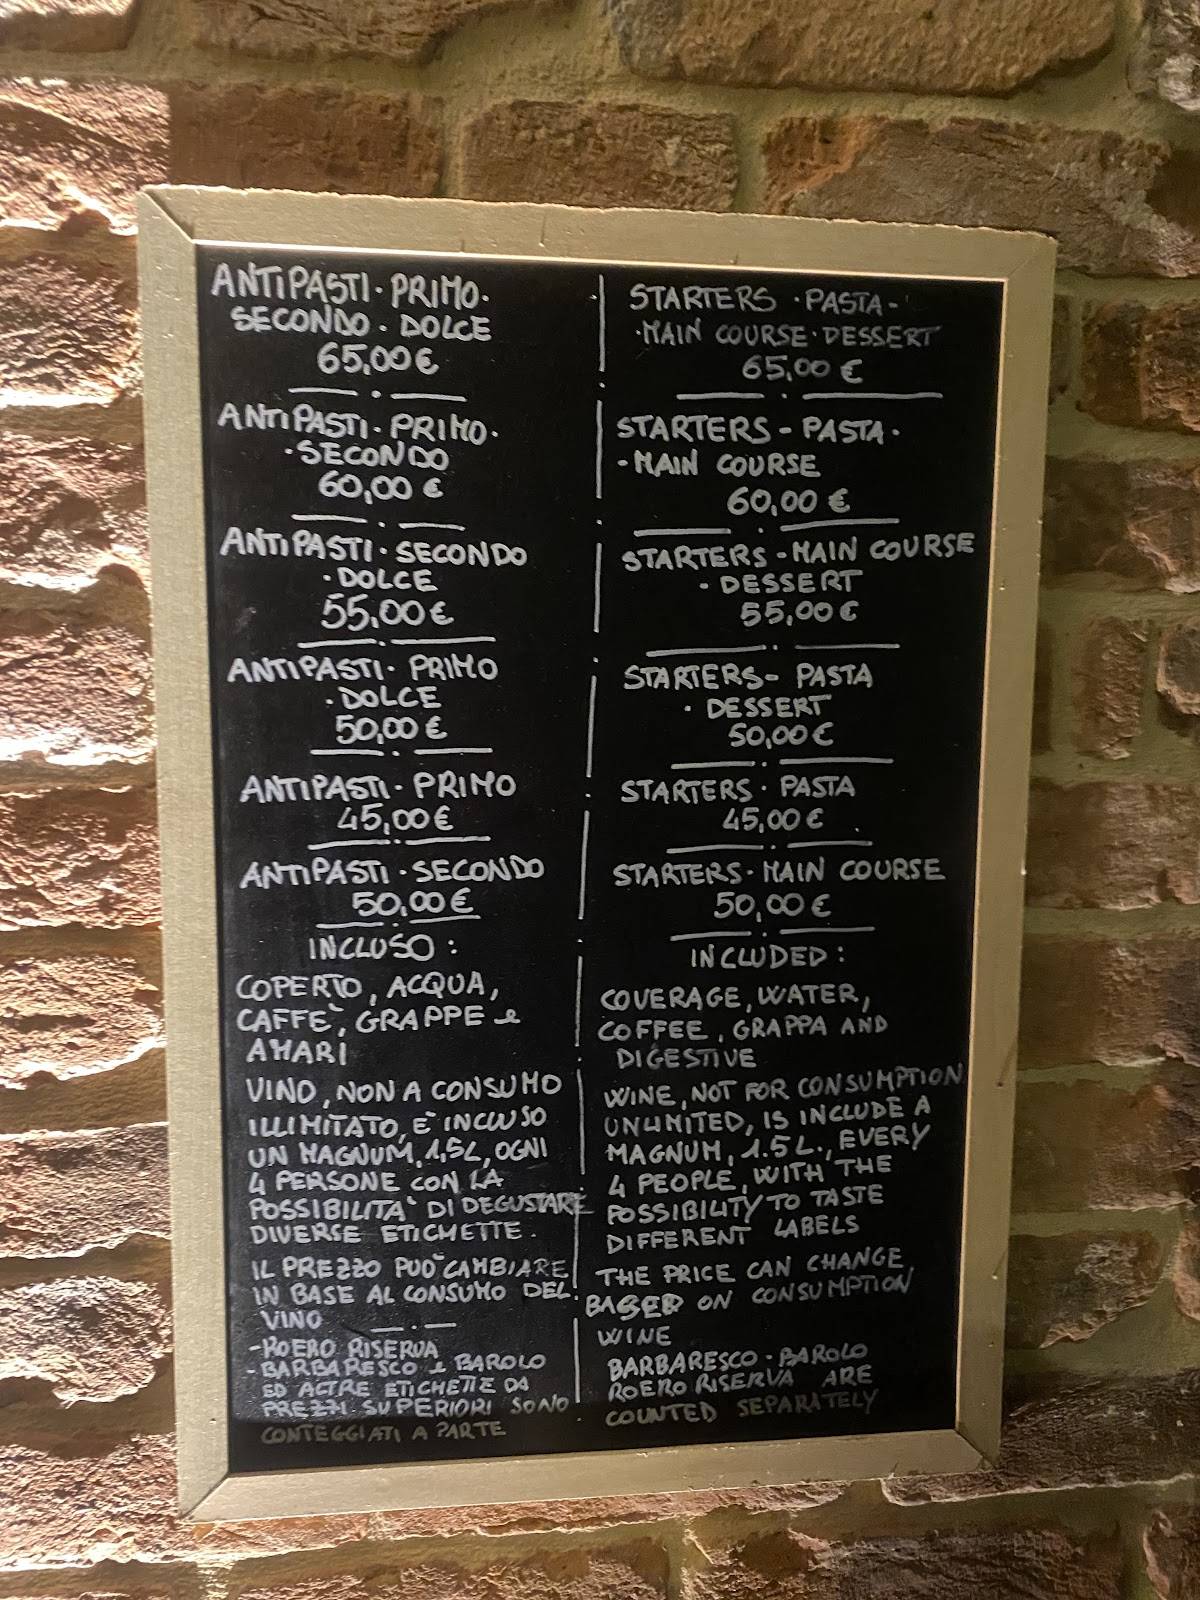 ANTIPASTI · PRIMO ·
SECONDO · DOLCE
65,00 €
ANTIPASTI · PRIMO ·
· SECONDO
60,00 €
ANTIPASTI · SECONDO
· DOLCE
55,00 €
ANTIPASTI · PRIMO
· DOLCE
50,00 €
ANTIPASTI · PRIMO
45,00 €
ANTIPASTI · SECONDO
50,00 €
INCLUSO :
COPERTO, ACQUA,
CAFFÈ, GRAPPE e
AMARI
VINO, NON A CONSUMO
ILLIMITATO, È INCLUSO
UN MAGNUM, 1,5L, OGNI
4 PERSONE CON LA
POSSIBILITÀ DI DEGUSTARE
DIVERSE ETICHETTE.
IL PREZZO PUÒ CAMBIARE
IN BASE AL CONSUMO DEL
VINO
- ROERO RISERVA
- BARBARESCO e BAROLO
ED ALTRE ETICHETTE DA
PREZZI SUPERIORI SONO
CONTEGGIATI A PARTE
STARTERS · PASTA -
· MAIN COURSE · DESSERT
65,00 €
STARTERS - PASTA ·
- MAIN COURSE
60,00 €
STARTERS - MAIN COURSE
· DESSERT
55,00 €
STARTERS - PASTA
· DESSERT
50,00 €
STARTERS · PASTA
45,00 €
STARTERS · MAIN COURSE
50,00 €
INCLUDED :
COVERAGE, WATER,
COFFEE, GRAPPA AND
DIGESTIVE
WINE, NOT FOR CONSUMPTION
UNLIMITED, IS INCLUDE A
MAGNUM, 1.5L., EVERY
4 PEOPLE, WITH THE
POSSIBILITY TO TASTE
DIFFERENT LABELS
THE PRICE CAN CHANGE
BASED ON CONSUMPTION
WINE
BARBARESCO · BAROLO
ROERO RISERVA ARE
COUNTED SEPARATELY